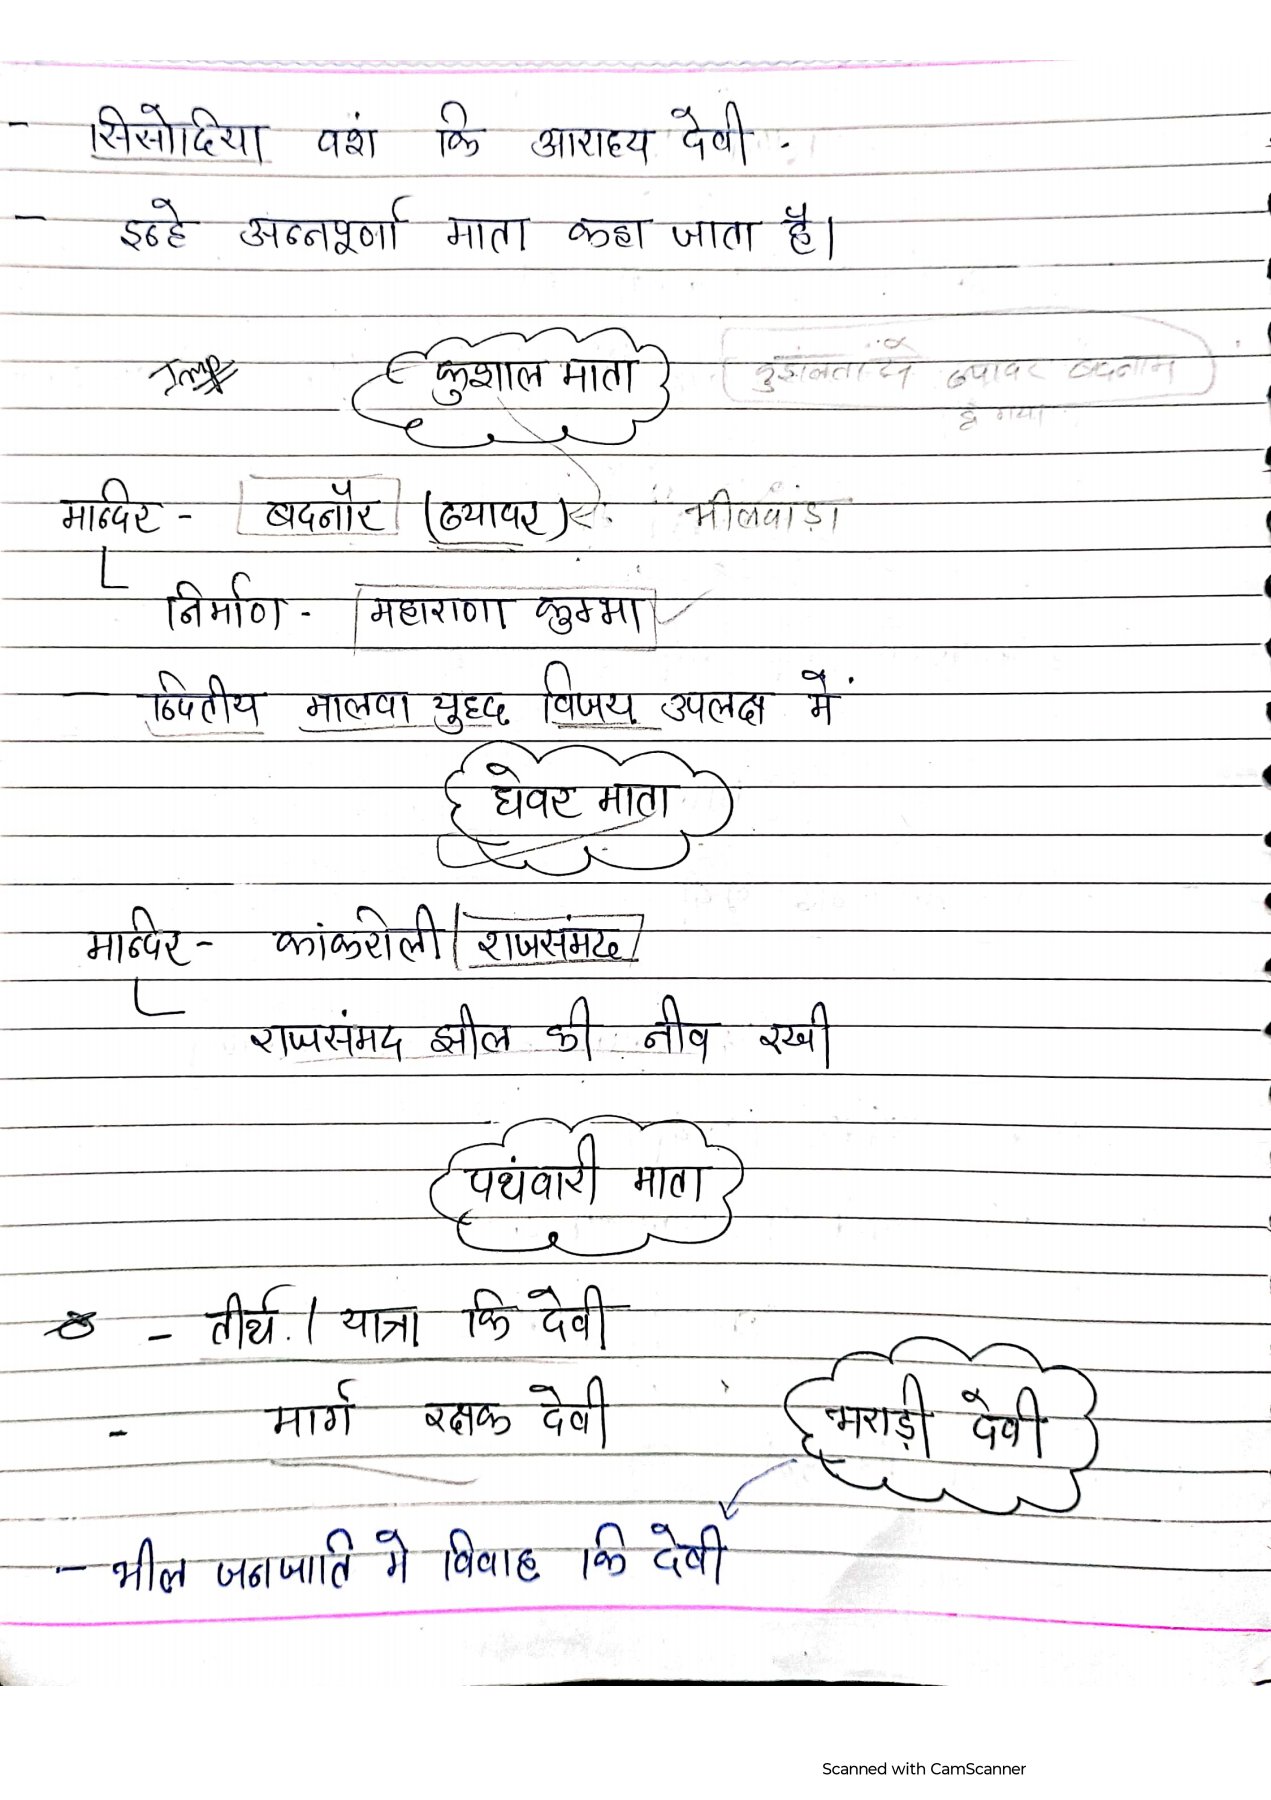 - सिसोदिया वशं कि आराध्य देवी -
- इन्हे अन्नपूर्णा माता कहा जाता है।
कुशाल माता
कुशलता से ब्यावर बदनाम
हो गया
मान्दिर - बदनौर (ब्यावर) भीलवाड़ा
निर्माण - महाराणा कुम्भा
- द्वितीय मालवा युद्ध विजय उपलक्ष में
घेवर माता
मान्दिर - कांकरोली / राजसंमद
राजसंमद झील की नीव रखी
पथंवारी माता
- तीर्थ / यात्रा कि देवी
- मार्ग रक्षक देवी
भराड़ी देवी
- भील जनजाति मे विवाह कि देवी
Scanned with CamScanner